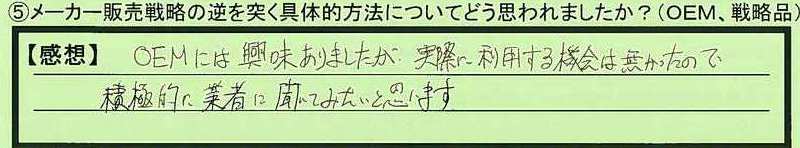 ⑤メーカー販売戦略の逆を突く具体的方法についてどう思われましたか？（OEM、戦略品）
【感想】 OEMには興味ありましたが 実際に利用する機会は無かったので
積極的に業者に聞いてみたいと思います